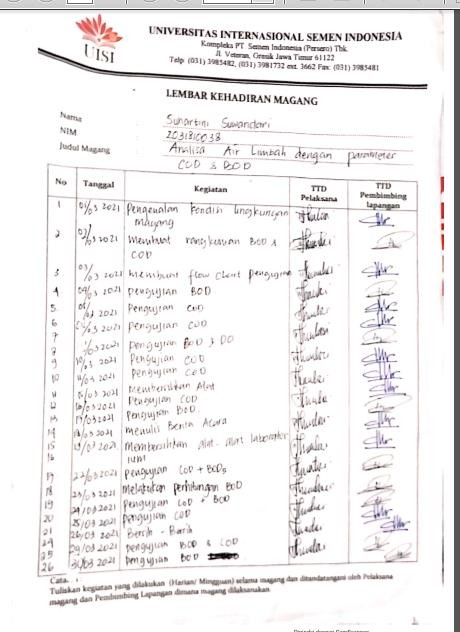 UISI
UNIVERSITAS INTERNASIONAL SEMEN INDONESIA
Kompleks PT. Semen Indonesia (Persero) Tbk.
Jl. Veteran, Gresik Jawa Timur 61122
Telp: (031) 3985482, (031) 3981732 ext. 3662 Fax: (031) 3985481
LEMBAR KEHADIRAN MAGANG
Nama Suhartini Suwandari
NIM 2031810038
Judul Magang Analisa Air Limbah dengan parameter
COD & BOD
No Tanggal Kegiatan TTD Pelaksana TTD Pembimbing lapangan
1 01/03 2021 Pengenalan Kondisi lingkungan
Magang
2 02/03 2021 Membuat rangkuman BOD &
COD
3 03/03 2021 membuat flow chart pengujian
4 04/03 2021 pengujian BOD
5 /03 2021 Pengujian COD
6 /03 2021 Pengujian COD
7
8 /03 2021 Pengujian BOD & DO
9 10/03 2021 Pengujian COD
10 11/03 2021 Pengujian COD
11 /03 2021 Membersihkan Alat
12 16/03 2021 Pengujian COD
13 17/03 2021 Pengujian BOD
14 18/03 2021 Menulis Berita Acara
15 19/03 2021 Membersihkan alat-alat laborator
16 ium
17 22/03 2021 pengujian COD + BOD5
18 23/03 2021 Melakukan perhitungan BOD
19 24/03 2021 Pengujian COD + BOD
20 25/03 2021 pengujian COD
21 26/03 2021 Bersih - Bersih
24 29/03 2021 pengujian BOD & COD
25 30/03 2021 pengujian BOD
26
Tuliskan kegiatan yang dilakukan (Harian/ Mingguan) selama magang dan ditandatangani oleh Pelaksana
magang dan Pembimbing Lapangan dimana magang dilaksanakan